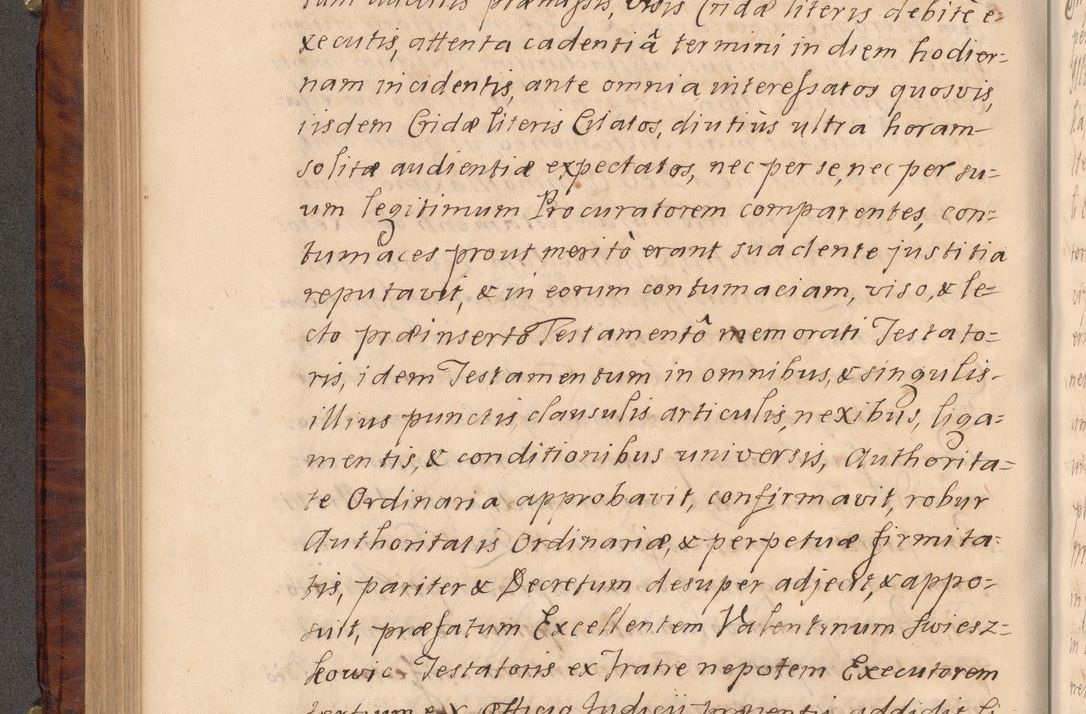 præmissis, visis Cridæ literis debitè e-
xecutis, attenta cadentiâ termini in diem hodier=
nam incidentis, ante omnia interessatos quosvis,
iisdem Cridæ literis Citatos, diutiùs ultra horam
solitæ audientiæ expectatos, nec per se, nec per su=
um legitimum Procuratorem comparentes, con=
tumaces prout meritò erant suadente justitia
reputavit, & in eorum contumaciam, viso, & le=
cto præinserto Testamentô memorati Testato=
ris, idem Testamentum in omnibus, & singulis
illius punctis, clausulis articulis, nexibus, liga=
mentis, & conditionibus universis, Authorita=
te Ordinaria approbavit, confirmavit, robur
Authoritatis Ordinariæ, & perpetuæ firmita=
tis, pariter & Decretum desuper adjecit, & appo=
suit, præfatum Excellentem Valentinum Swiesz=
kowic Testatoris ex Fratre nepotem Executorem
ex Officio Judicii præsentis addidit